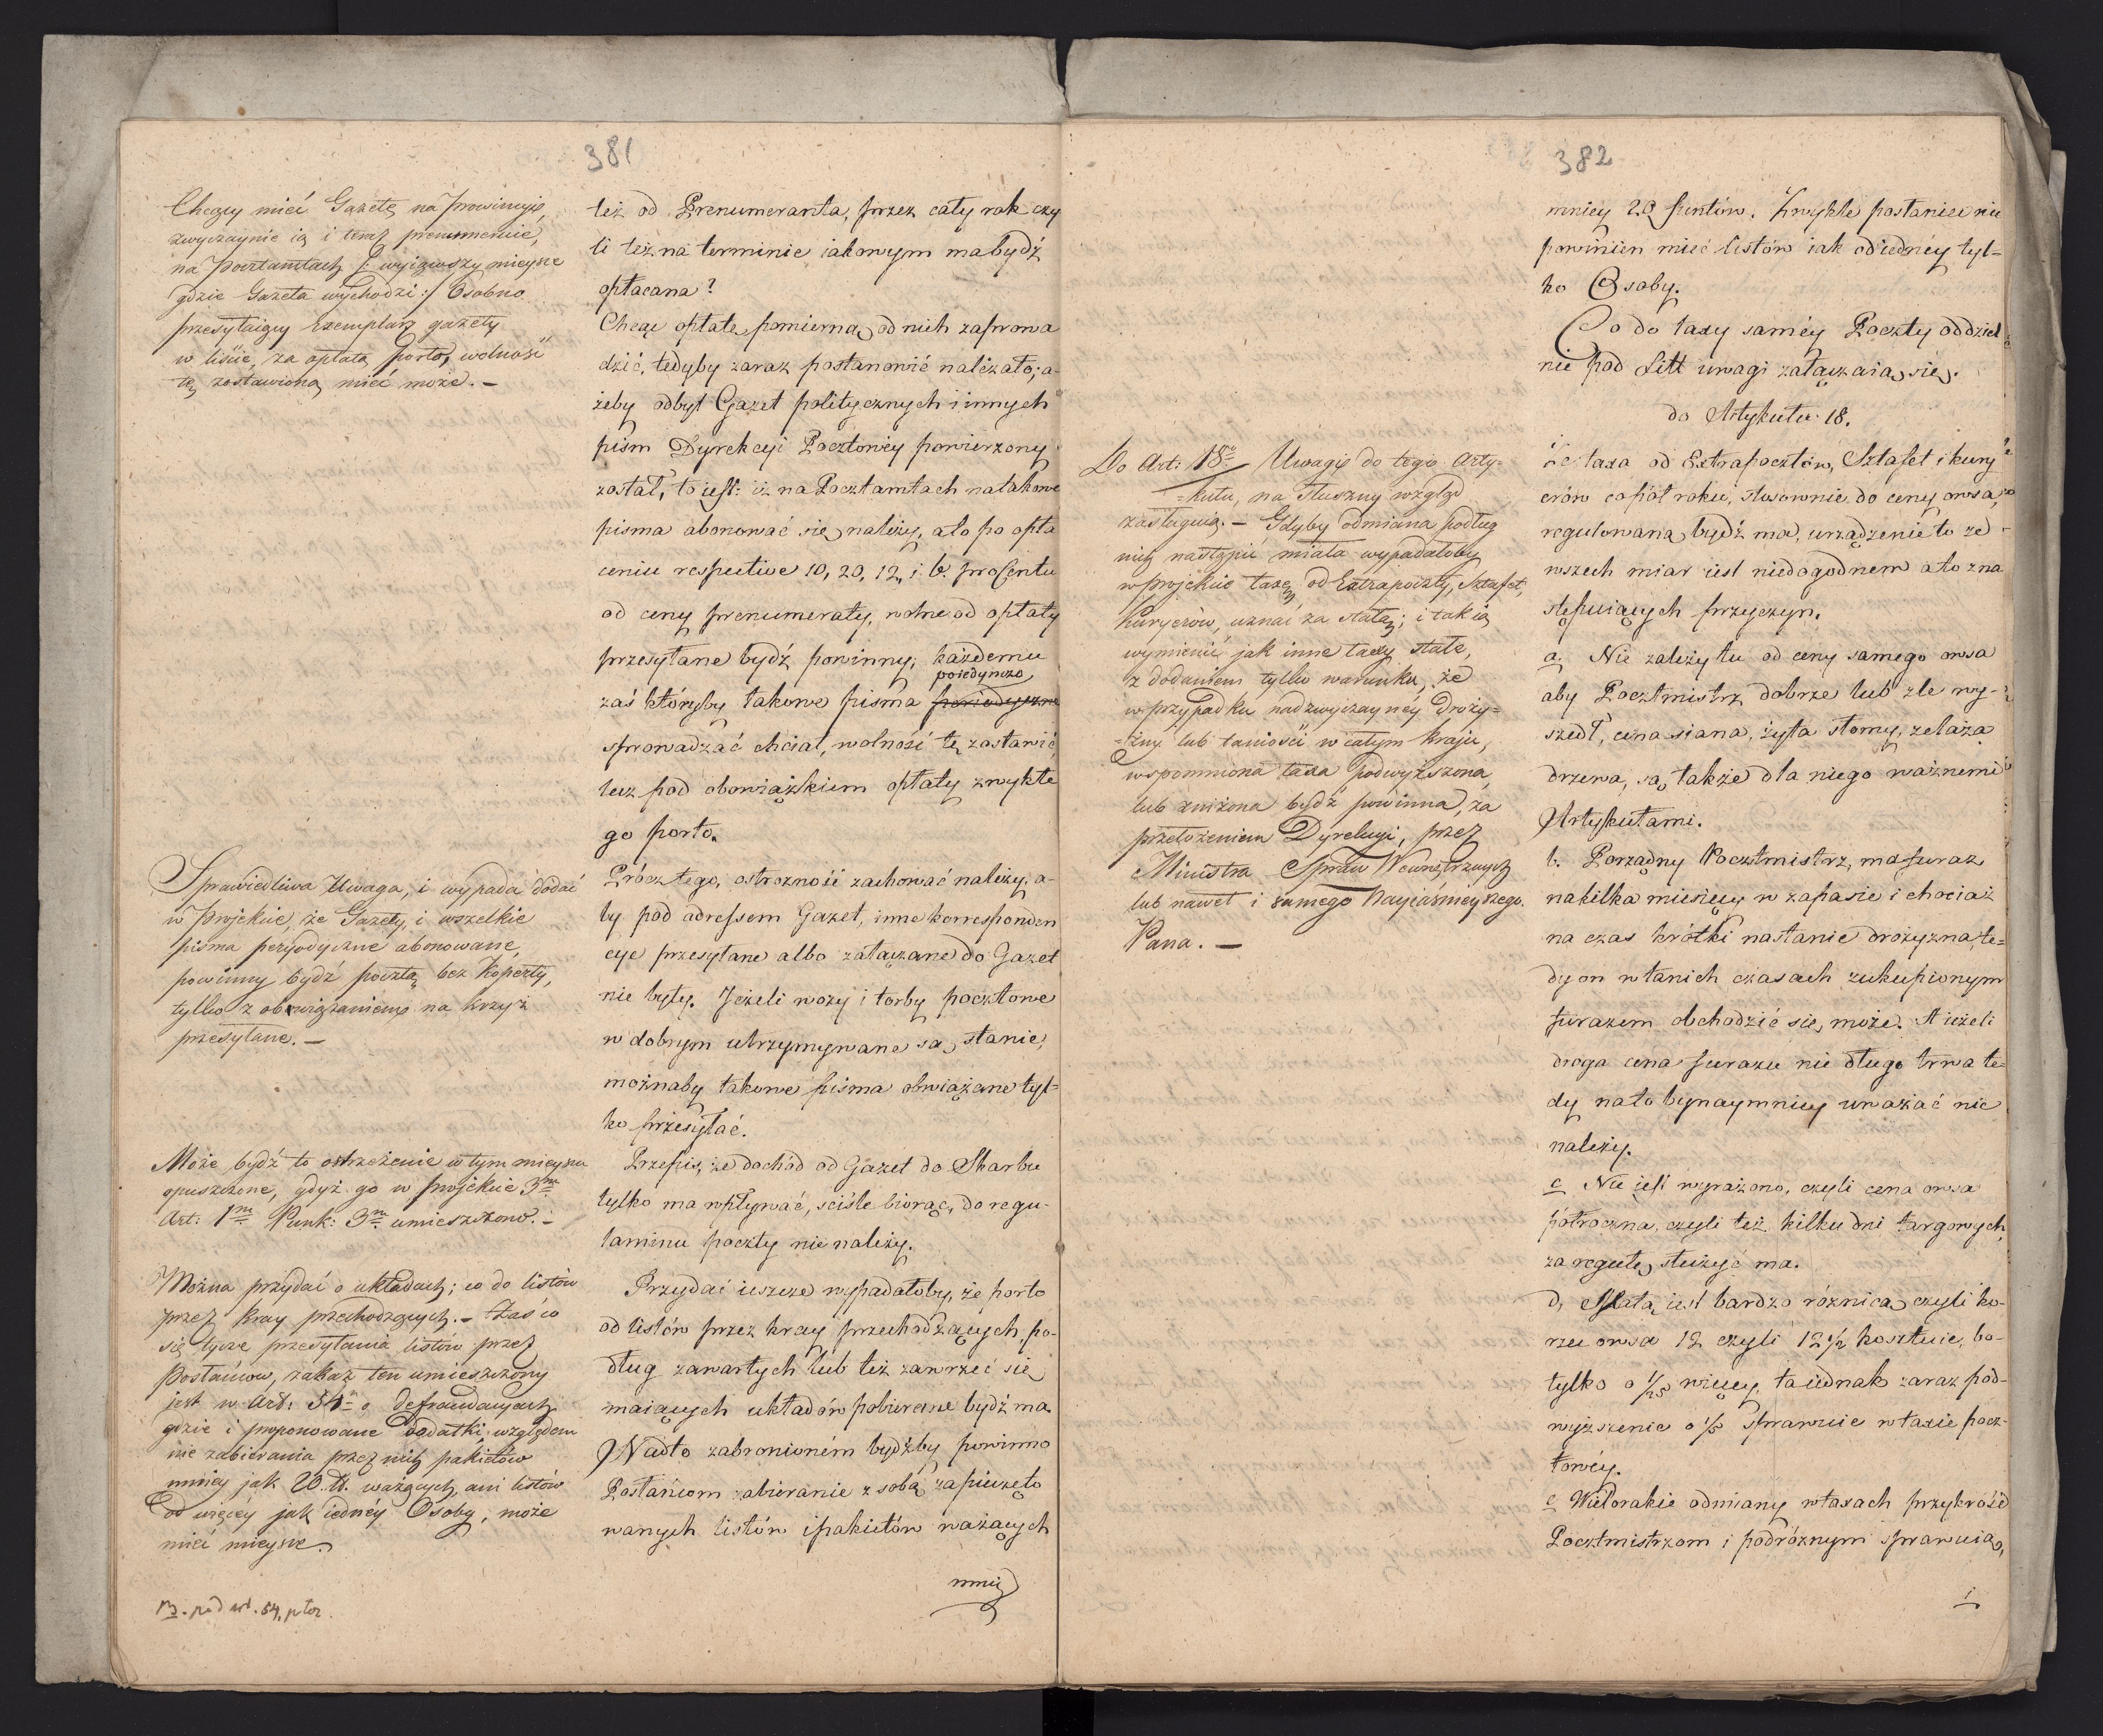 381
Chcący mieć Gazetę na Prowincyię,
zwyczaynie ią i teraz prenumeruie,
na Pocztamtach /: wyiąwszy mieysce
gdzie Gazeta wychodzi :/ Osobno
przesyłaiący Exemplarz gazety
w liście, za opłatą Porto, wolność
tę zostawioną mieć może. –
Sprawiedliwa Uwaga, i wypada dodać
w Projekcie, że Gazety, i wszelkie
pisma peryodyczne abonowane,
powinny bydź pocztą bez Koperty,
tylko z obwiązaniem na krzyż
przesyłane. –
Może bydź to ostrzeżenie w tym mieyscu
opuszczone, gdyż go w Projekcie 3m
Art: 1m Punk: 3m umieszczono. –
Można przydać o układach; co do listów
przez Kray przechodzących. – Zaś co
się tycze przesyłania listów przez
Posłańców, zakaz ten umieszczony
jest w Art: 54 o defraudacyach
gdzie i proponowane dodatki, względem
nie zabierania przez nich pakietów
mniey jak 20 tt. ważących, ani listów
od więcéy jak iednéy Osoby, może
mieć mieysce.
pod art. 54.
też od Prenumeranta, przez cały rok czy
li też na terminie iakowym ma bydź
opłacana?
Chcąc opłatę pomierną od nich zaprowa
dzić, tedyby zaraz postanowić należało; a-
żeby odbyt Gazet politycznych i innych
pism Dyrekcyi Pocztowéy powierzony
został, to iest: iż na Pocztamtach na takowe
pisma abonować się należy, a to po opła
ceniu respective 10, 20, 12, i 6. procentu
od ceny prenumeraty, wolne od opłaty
przesyłane bydź powinny; każdemu
poiedynczo
zaś któryby takowe pisma peryodyczne
sprowadzać chciał, wolność tę zostawić,
lecz pod obowiązkiem opłaty zwykłe
go porto.
Prócz tego, ostrożność zachować należy, a-
by pod adressem Gazet, inne korresponden
cye przesyłane albo załączane do Gazet
nie były. Jeżeli wozy i torby pocztowe
w dobrym utrzymywane są stanie,
możnaby takowe pisma obwiązane tyl=
ko przesyłać.
Przepis, że dochód od Gazet do Skarbu
tylko ma wpływać, ściśle biorąc, do regu-
laminu poczty nie należy.
Przydać ieszcze wypadałoby, że porto
od listów przez kray przechodzących, po-
dług zawartych lub też zawrzeć się
maiących układów pobierane bydź ma.
Nadto zabronioném bydźby powinno
Posłańcom zabieranie z sobą zapieczęto
wanych listów i pakietów ważących
mniéy
382
Do Art: 18go Uwagi do tego Arty=
=kułu, na słuszny wzgląd
zasługuią. – Gdyby odmiana podług
nich nastąpić miała wypadałoby
w projekcie taxę od Extrapoczty, Sztafet,
Kuryerów, uznać za stałą; i tak ią
wymienić jak inne taxy stałe,
z dodaniem tylko warunku, że
w przypadku nadzwyczaynéy Droży=
=zny lub taniości w całym Kraju,
wspomniona taxa podwyższona,
lub zniżona bydź powinna, za
przełożeniem Dyrekcyi, przez
Ministra Spraw Wewnętrznych
lub nawet i samego Nayiaśnieyszego.
Pana. –
mniey 20 funtów. Zwykle posłaniec nie
powinien mieć listów iak od iednéy tyl=
ko Osoby.
Co do taxy saméy Poczty oddziel
nie pod Litt uwagi załączaią się.
do Artykułu 18.
Że taxa od Extrapocztów, Sztafet i kury
erów co pół roku, stosownie do ceny owsa,
regulowaną bydź ma, urządzenie to ze
wszech miar iest niedogodnem a to z na
stępuiących przyczyn.
a. Nie zależy tu od ceny samego owsa
aby Pocztmistrz dobrze lub źle wy-
szedł, cena siana, żyta słomy, żelaza
drzewa, są także dla niego ważnemi
Artykułami.
b. Porządny Pocztmistrz, ma furaz
na kilka miesięcy w zapasie i chociaż
na czas krótki nastanie drożyzna, te=
dy on w tanich czasach zakupionym
furazem obchodzić się może. A ieżeli
droga cena furazu nie długo trwa te=
dy na to bynaymniey uważać nie
należy.
c Nie iest wyrażono, czyli cena owsa
półroczna, czyli też kilku dni targowych,
za regułę służyć ma.
d, Mała iest bardzo różnica czyli ko-
rzec owsa 12 czyli 12 1/2 kosztuie, bo-
tylko o 1/25 więcey, ta iednak zaraz pod-
wyższenie o 1/5 sprawuie w taxie pocz-
towéy.
e Wielorakie odmiany w taxach przykrość
Pocztmistrzom i podróżnym sprawuią,
i